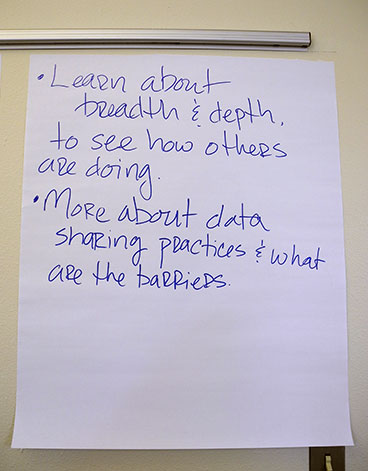 • Learn about
breadth & depth,
to see how others
are doing.
• More about data
sharing practices & what
are the barriers.